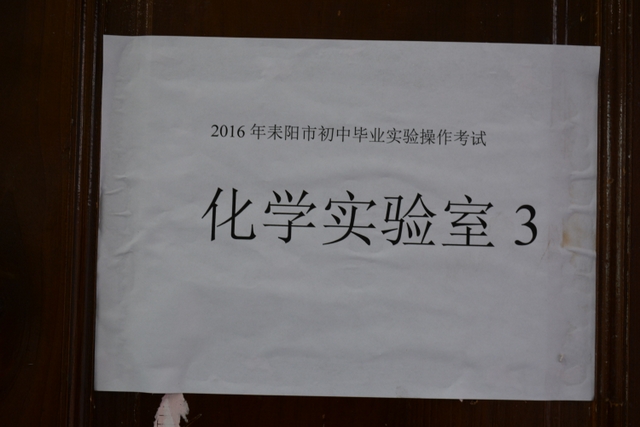 2016 年耒阳市初中毕业实验操作考试
化学实验室 3